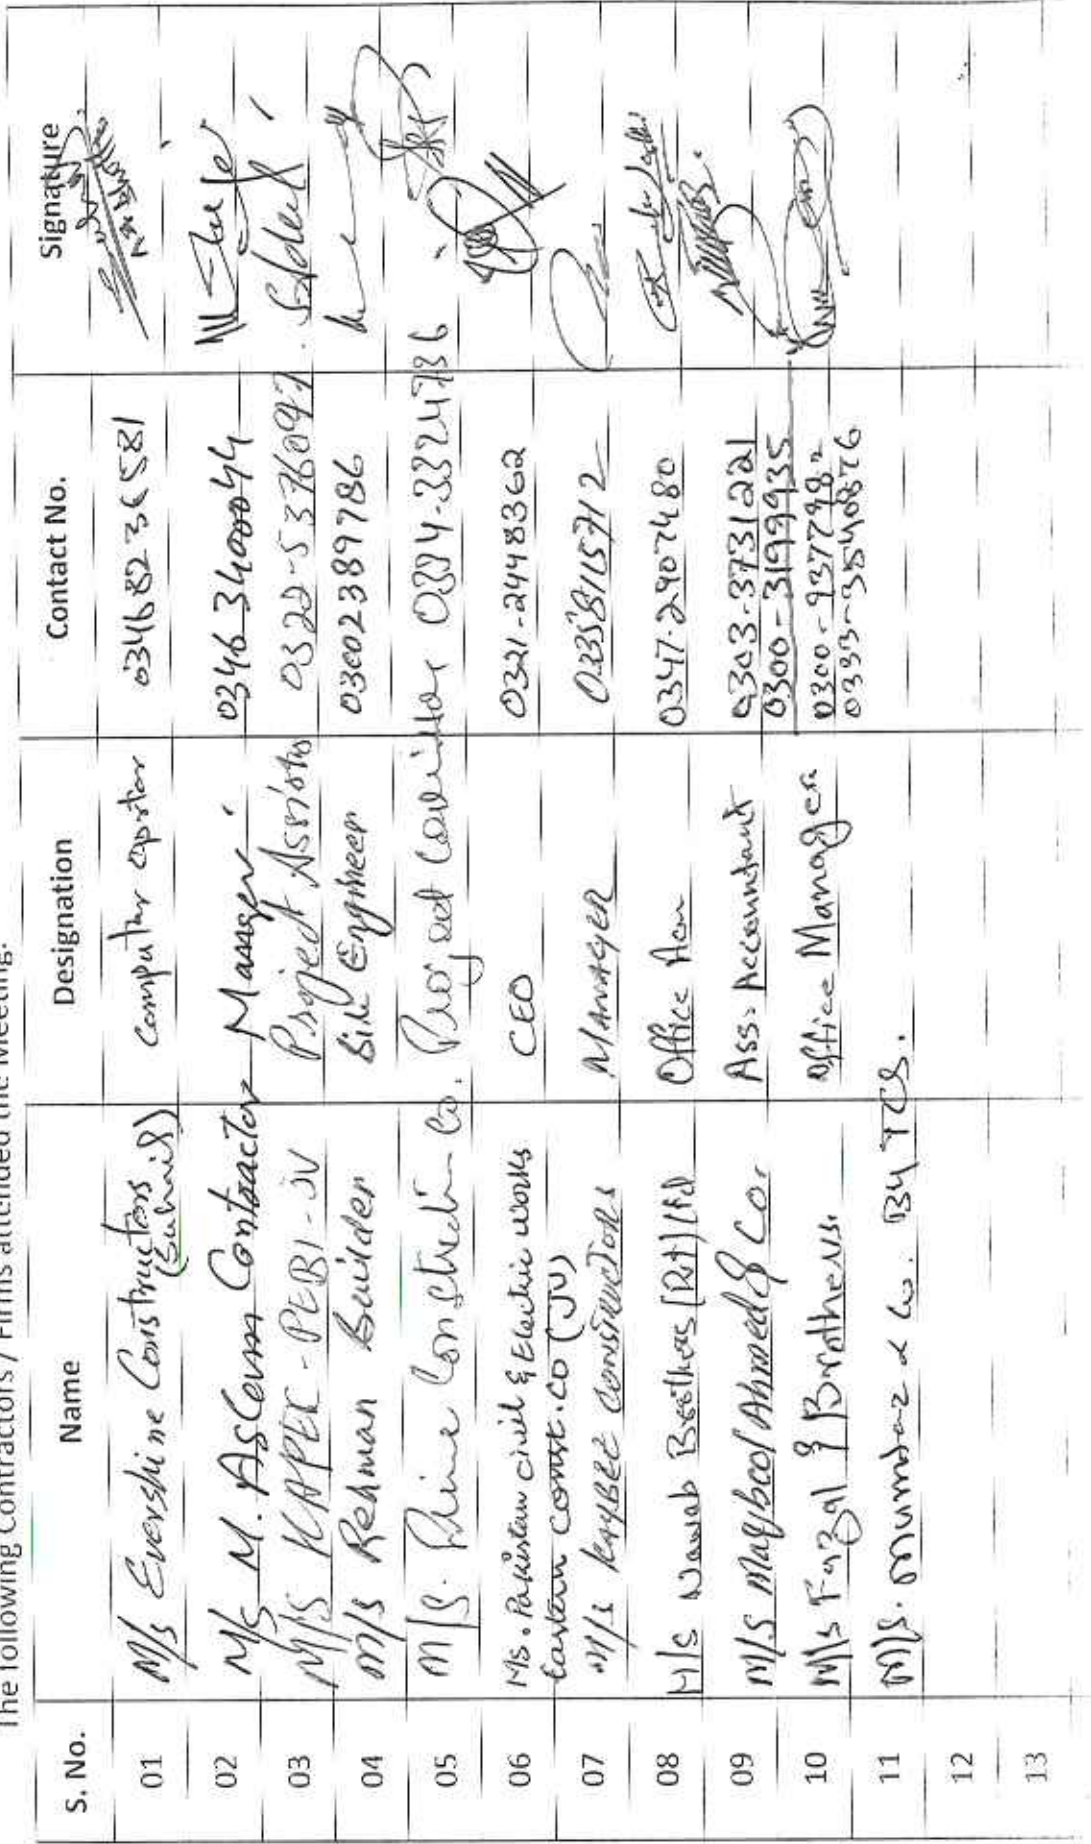 The following Contractors / Firms attended the Meeting.
S. No. Name Designation Contact No. Signature
01 M/s Evershine Constructors (Suhail) Computer opretor 03468236581
02 M/s M. Asleum Contractor Manager. 0346 3400044
03 M/S KAPEC-PEBI-JV Project Assistn 0322-5376097
04 M/s Rehman Builder Site Engineer 03002389786
05 M/S. Prime Constructn Co. 0334-3324736
06 Ms. Pakistan civil & Electric works CEO 0321-2448362
Eastern const. co (JV)
07 M/s KAYBEE CONSTRUCTORS MANAGER 03358115712
08 M/S Nawab Brothers (Pvt) Ltd Office 0347-2907480
09 M/S Maqbool Ahmed & Co. Ass. Accountant 0303-3731221
0300-3199935
10 M/s Fazal & Brothers. Office Manager
0333-3540876
11 M/S. Mumtaz & Co. By TCS.
12
13